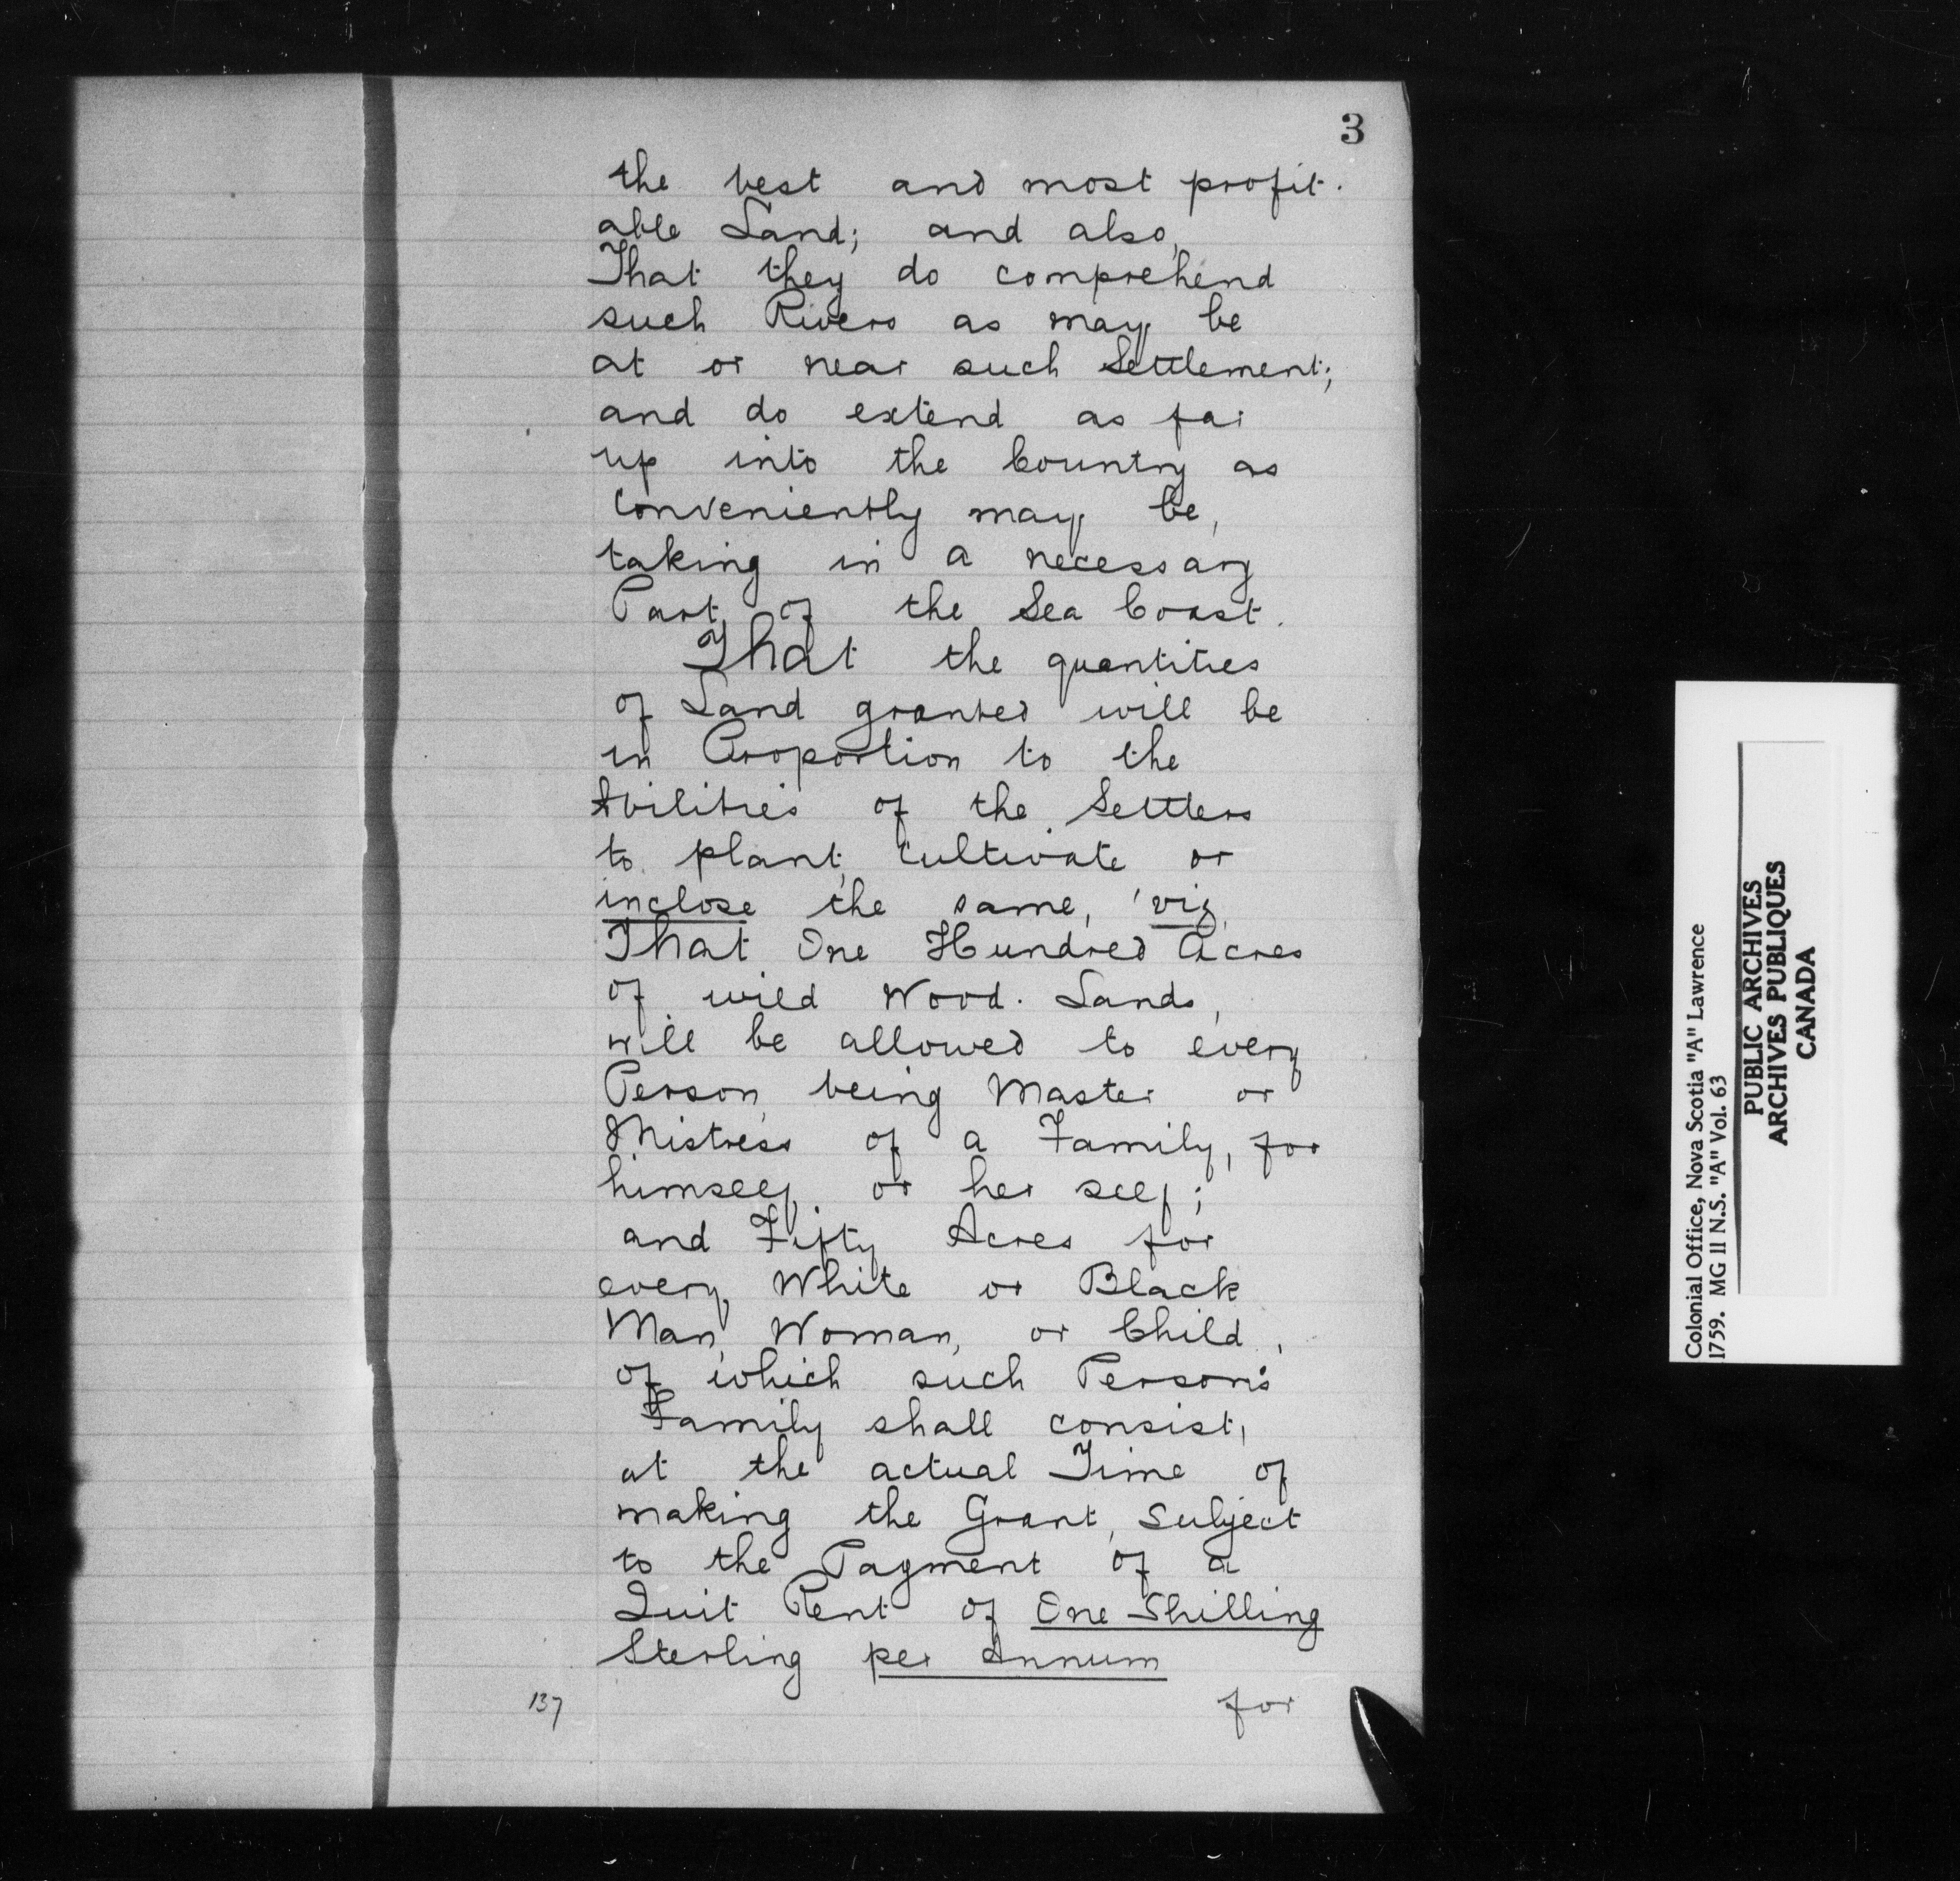 3
the best and most profit-
able Land; and also,
That they do comprehend
such Rivers as may be
at or near such Settlement;
and do extend as far
up into the Country as
conveniently may be,
taking in a necessary
Part of the Sea Coast.
That the quantities
of Land granted will be
in Proportion to the
Abilities of the Settlers
to plant, cultivate or
inclose the same, viz,
That One Hundred Acres
of wild Wood-Lands,
will be allowed to every
Person, being Master or
Mistress of a Family, for
himself or her self;
and Fifty Acres for
every White or Black
Man, Woman, or Child,
of which such Person's
Family shall consist,
at the actual Time of
making the Grant, Subject
to the Payment of a
Quit Rent of One Shilling
Sterling per Annum
137 for
Colonial Office, Nova Scotia "A" Lawrence
1759. MG 11 N.S. "A" Vol. 63
PUBLIC ARCHIVES
ARCHIVES PUBLIQUES
CANADA